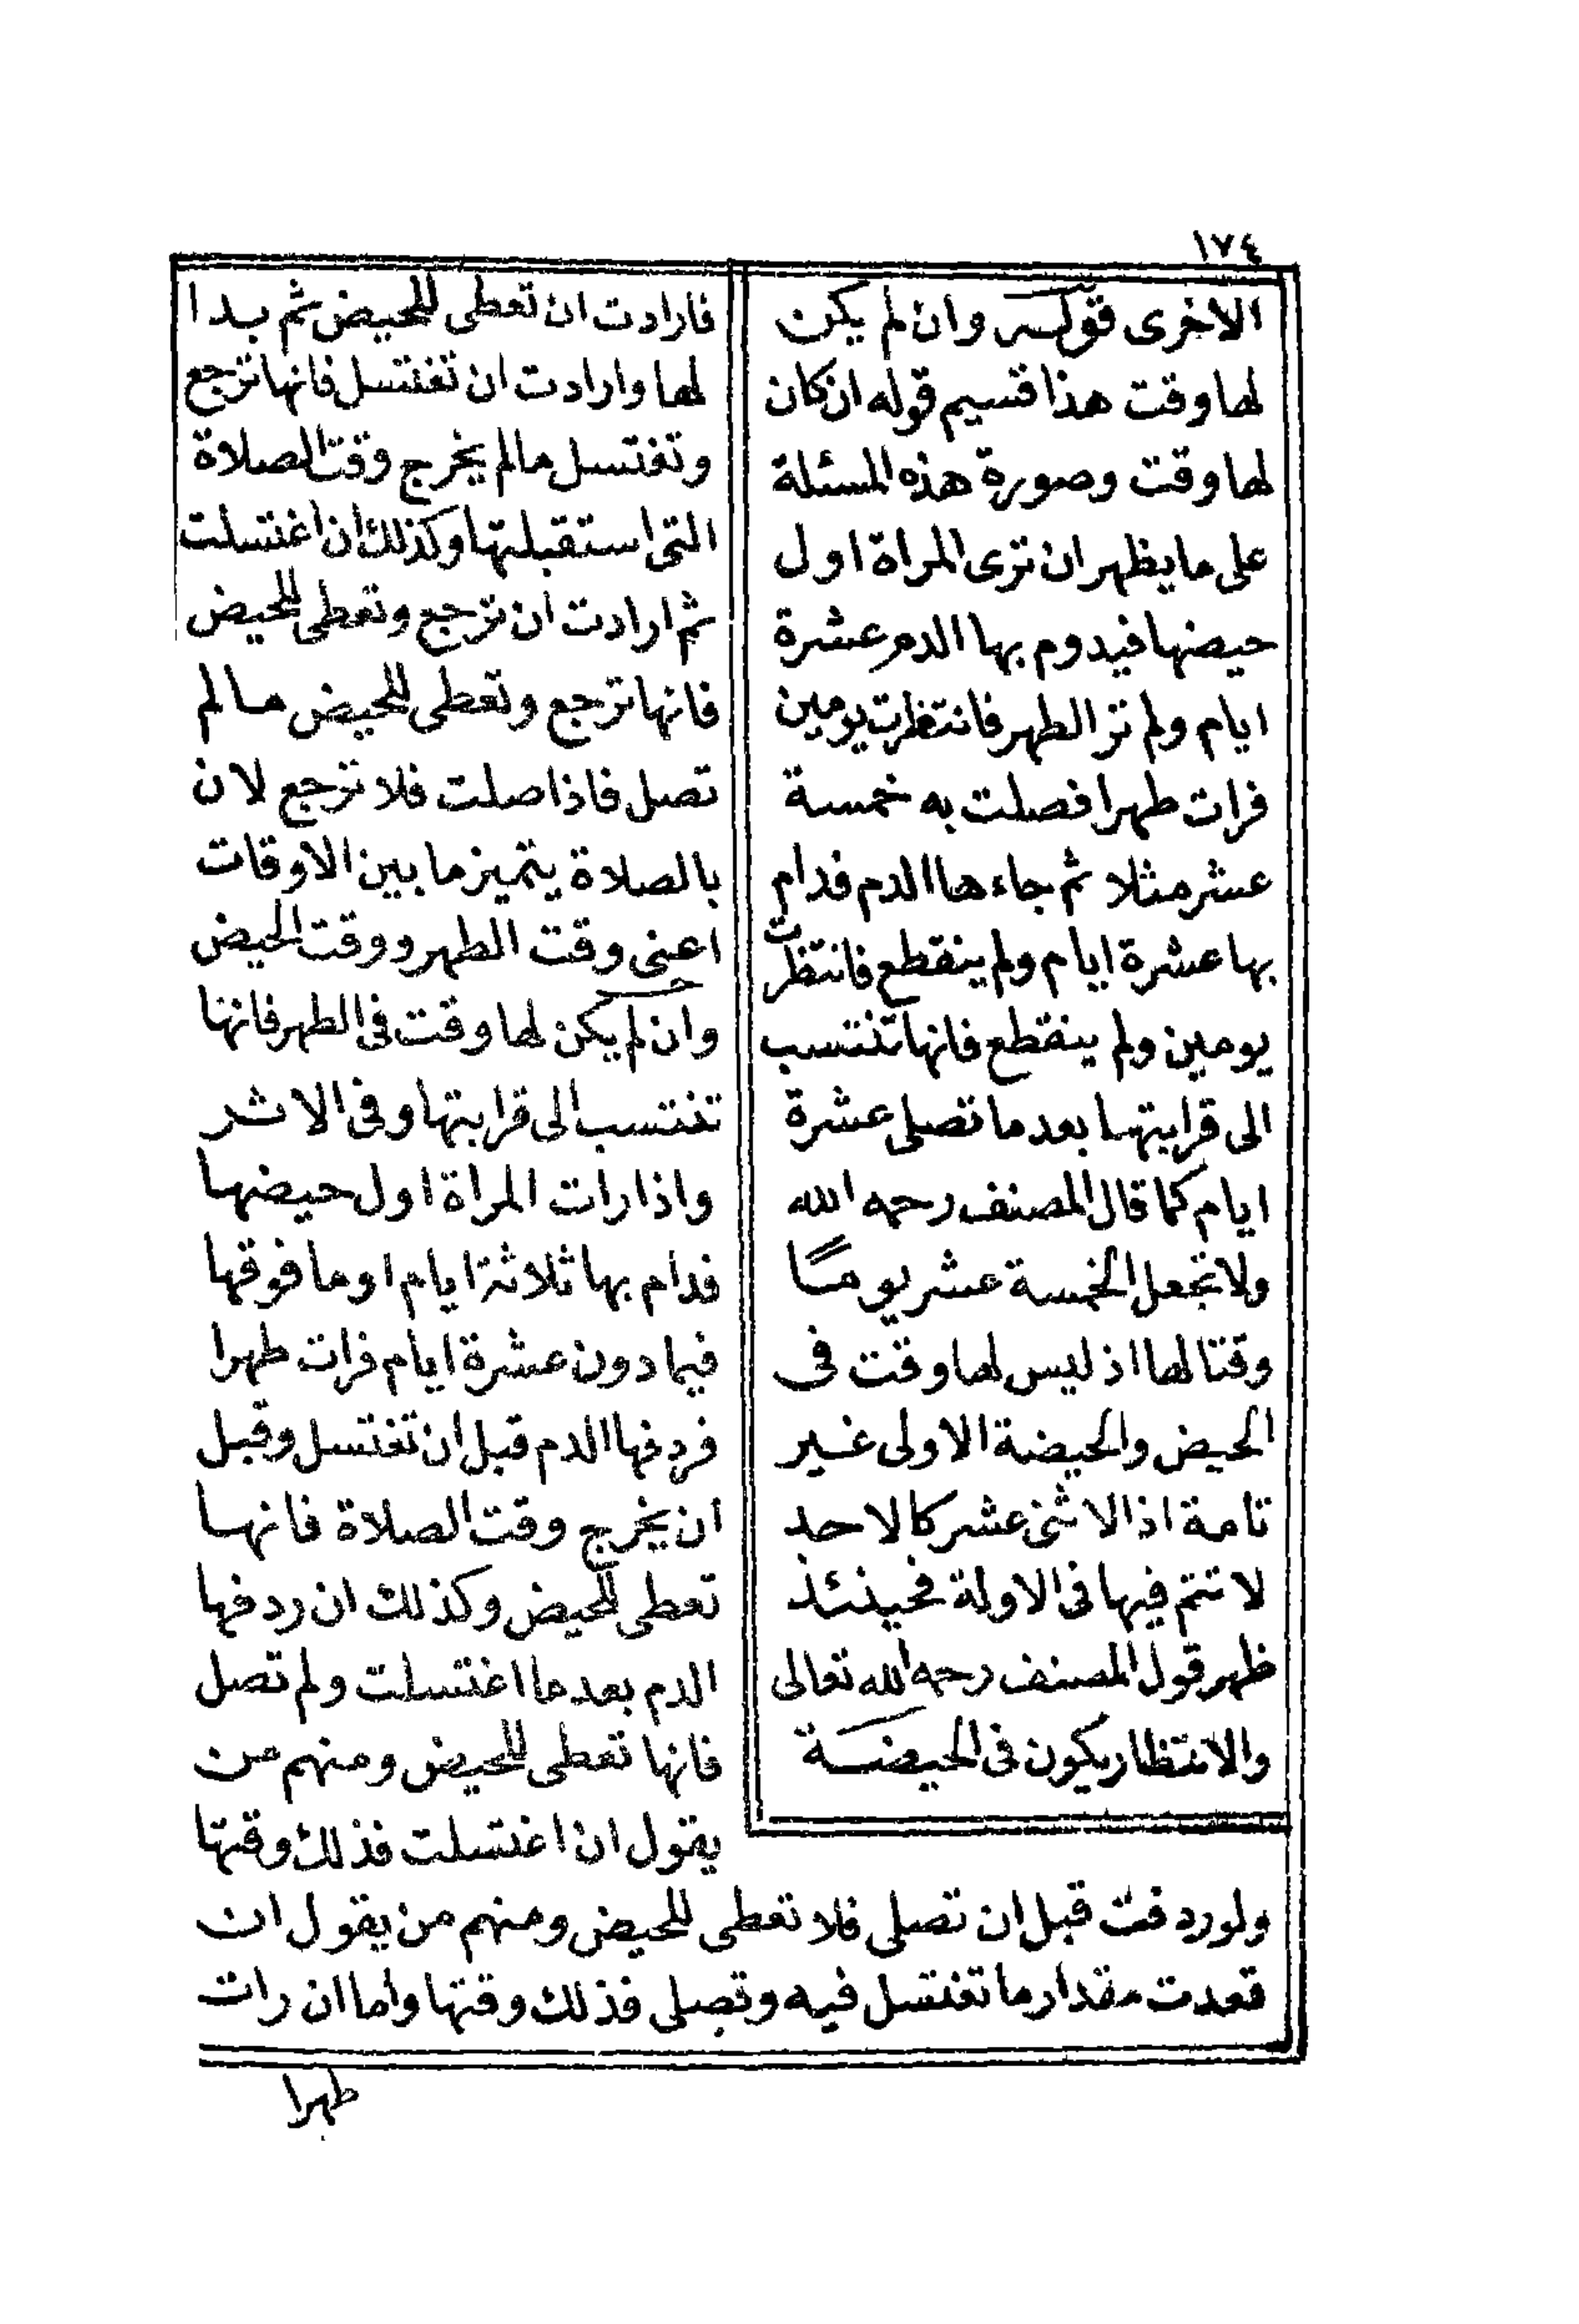 ١٧٤
الاخرى قوله وان لم يكن
لها وقت هذا قسيم قوله ان كان
لها وقت وصورة هذه المسئلة
على ما يظهر ان ترى المراة اول
حيضها فيدوم بها الدم عشرة
ايام ولم تر الطهر فانتظرت يومين
فرات طهرا فصلت به خمسة
عشر مثلا ثم جاءها الدم فدام
بها عشرة ايام ولم ينقطع فانتظرت
يومين ولم ينقطع فانها تنتسب
الى قرابتها بعد ما تصلى عشرة
ايام كما قال المصنف رحمه الله
ولا تجعل الخمسة عشر يومًا
وقتا لها اذ ليس لها وقت فى
الحيض والحيضة الاولى غير
تامة اذ الاثنى عشر كالاحد
لا تتم فيها فى الاولة فحينئذ
ظهر قول المصنف رحمه الله تعالى
والانتظار يكون فى الحيضة
فارادت ان تعطى للحيض ثم بدا
لها وارادت ان تغتسل فانها ترجع
وتغتسل ما لم يخرج وقت الصلاة
التى استقبلتها وكذلك ان اغتسلت
ثم ارادت ان ترجع وتعطى للحيض
فانها ترجع وتعطى للحيض ما لم
تصل فاذا صلت فلا ترجع لان
بالصلاة يتميز ما بين الاوقات
اعنى وقت الطهر ووقت الحيض
وان لم يكن لها وقت فى الطهر فانها
تنتسب الى قرابتها وفى الاثر
واذا رات المراة اول حيضها
فدام بها ثلاثة ايام او ما فوقها
فيما دون عشرة ايام فرات طهرا
فردفها الدم قبل ان تغتسل وقبل
ان يخرج وقت الصلاة فانها
تعطى للحيض وكذلك ان ردفها
الدم بعد ما اغتسلت ولم تصل
فانها تعطى للحيض ومنهم من
يقول ان اغتسلت فذلك وقتها
ولو ردفت قبل ان تصلى فلا تعطى للحيض ومنهم من يقول ان
قعدت مقدار ما تغتسل فيه وتصلى فذلك وقتها واما ان رات
طهرا